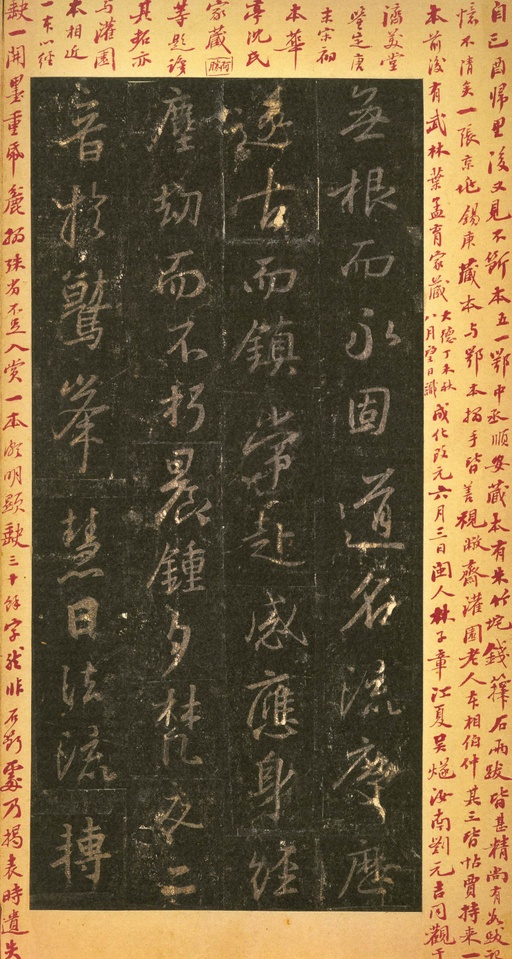 自己酉帰里後又見不斷本五一鄂中丞順安藏本有朱竹垞錢籜石兩跋皆甚精尚有跋記
憶不清矣一張京地錫庚藏本与鄂本拓手皆善視齋灌園老人本相伯仲其三皆帖賈持来一
本前後有武林葉孟育家藏大德丁未秋八月望日識成化改元六月三日閩人林子章江夏吳燧汝南劉元吉同觀于
濟美堂
鑒定庚
宗初
本華
亭沈氏
家藏
等題識
其拓亦
与灌園
本相近
一本以經
缺一開墨重麄拓殊劣不足入賞一本明顯缺三十餘字非石斷處乃揭表時遺失
無根而永固道名流慶歷
遂古而鎮常赴感應身經
塵劫而不朽晨鍾夕梵交二
音於鷲峯慧日法流轉